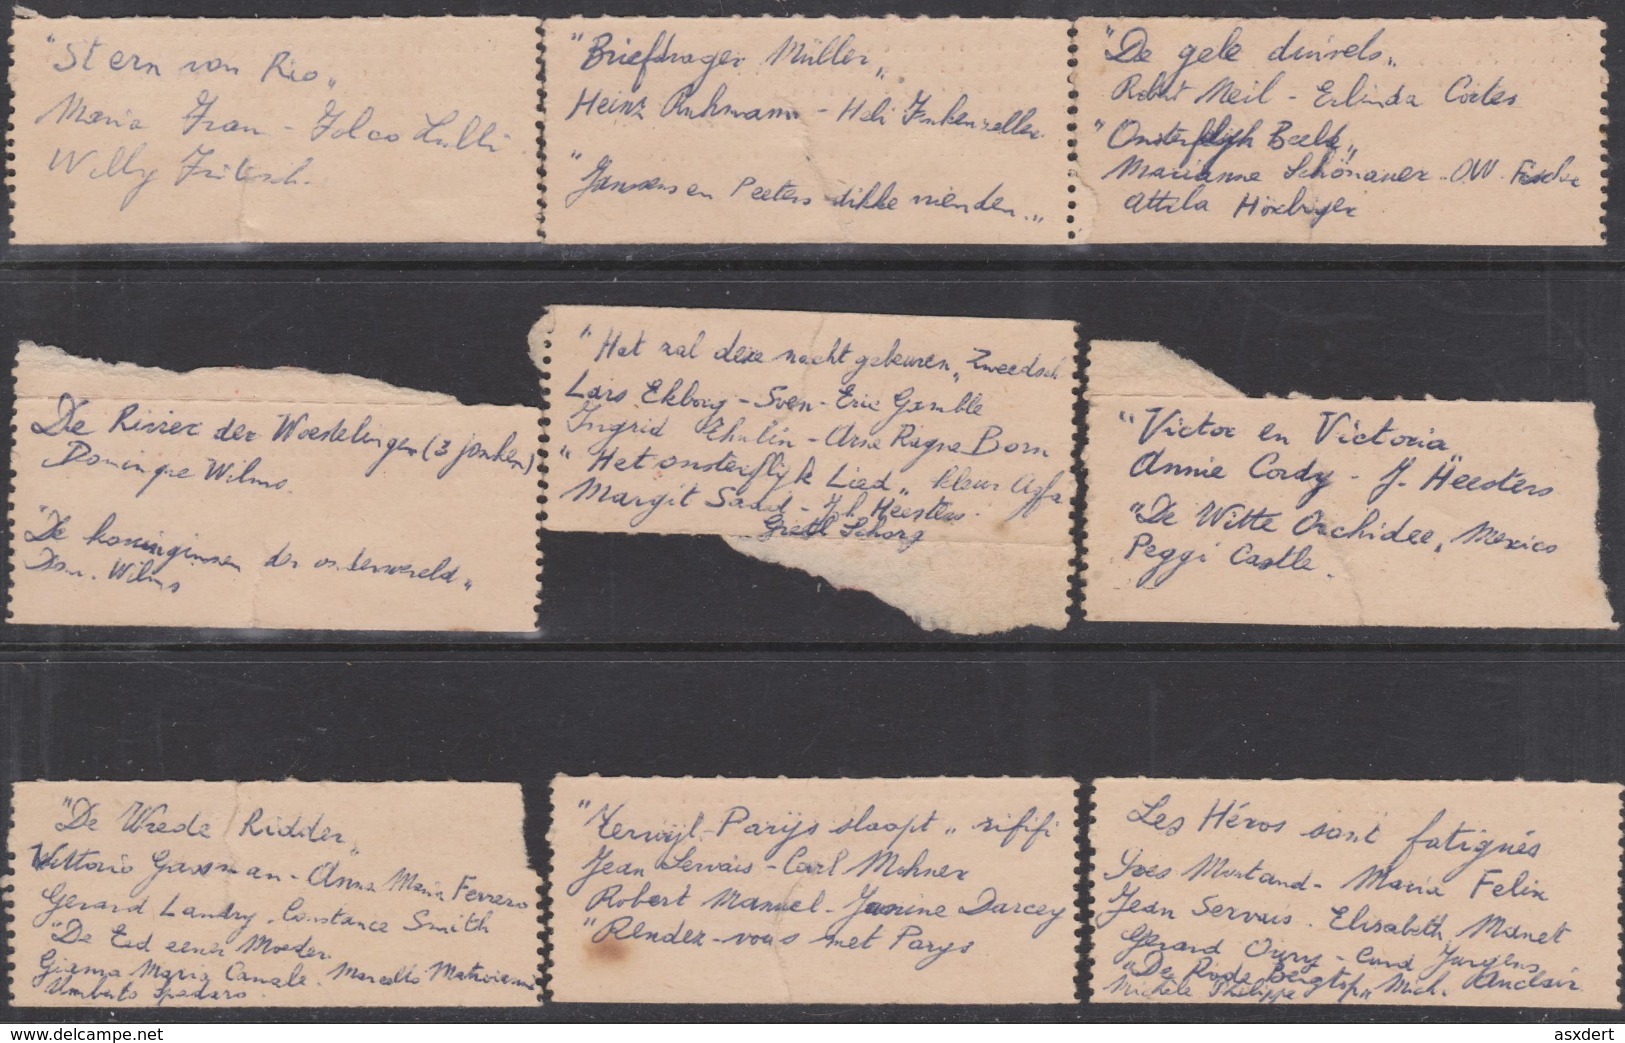 "Stern van Rio"
Maria Fran - Folco Lulli
Willy Fritsch.
"Briefdrager Müller"
Heinz Ruhmann - Heli Finkenzeller.
"Janssens en Peeters dikke vrienden..."
"De gele duivels"
Robert Neil - Erlinda Cortes
"Onsterflijk Beeld"
Marianne Schönauer - O.W. Fischer
Attila Hörbiger
De Rivier der Woestelingen (3 jonken)
Dominique Wilms.
"De koninginnen der onderwereld"
Dom. Wilms
"Het zal deze nacht gebeuren" Zweedsch
Lars Ekborg - Sven-Eric Gamble
Ingrid Thulin - Arne Ragne Born
"Het onsterflijk Lied" kleur Agfa
Margit Saad - Joh Heesters.
Gretl Schorg
"Victor en Victoria"
Annie Cordy - J. Heesters
"De Witte Orchidee" Mexico
Peggi Castle.
"De Wrede Ridder"
Vittorio Gassman - Anna Maria Ferrero
Gerard Landry. Constance Smith
"De Eed eener Moeder
Gianna Maria Canale. Marcello Matroianni
Umberto Spadaro.
"Terwijl Parijs slaapt" rififi
Jean Servais - Carl Mohner
Robert Manuel - Janine Darcey
"Rendez-vous met Parys
Les Héros sont fatigués
Yves Montand - Maria Felix
Jean Servais. Elisabeth Manet
Gerard Oury - Curd Jurgens
"De Rode Bergtop" Mich. Auclair
Michèle Philippe
asxdert